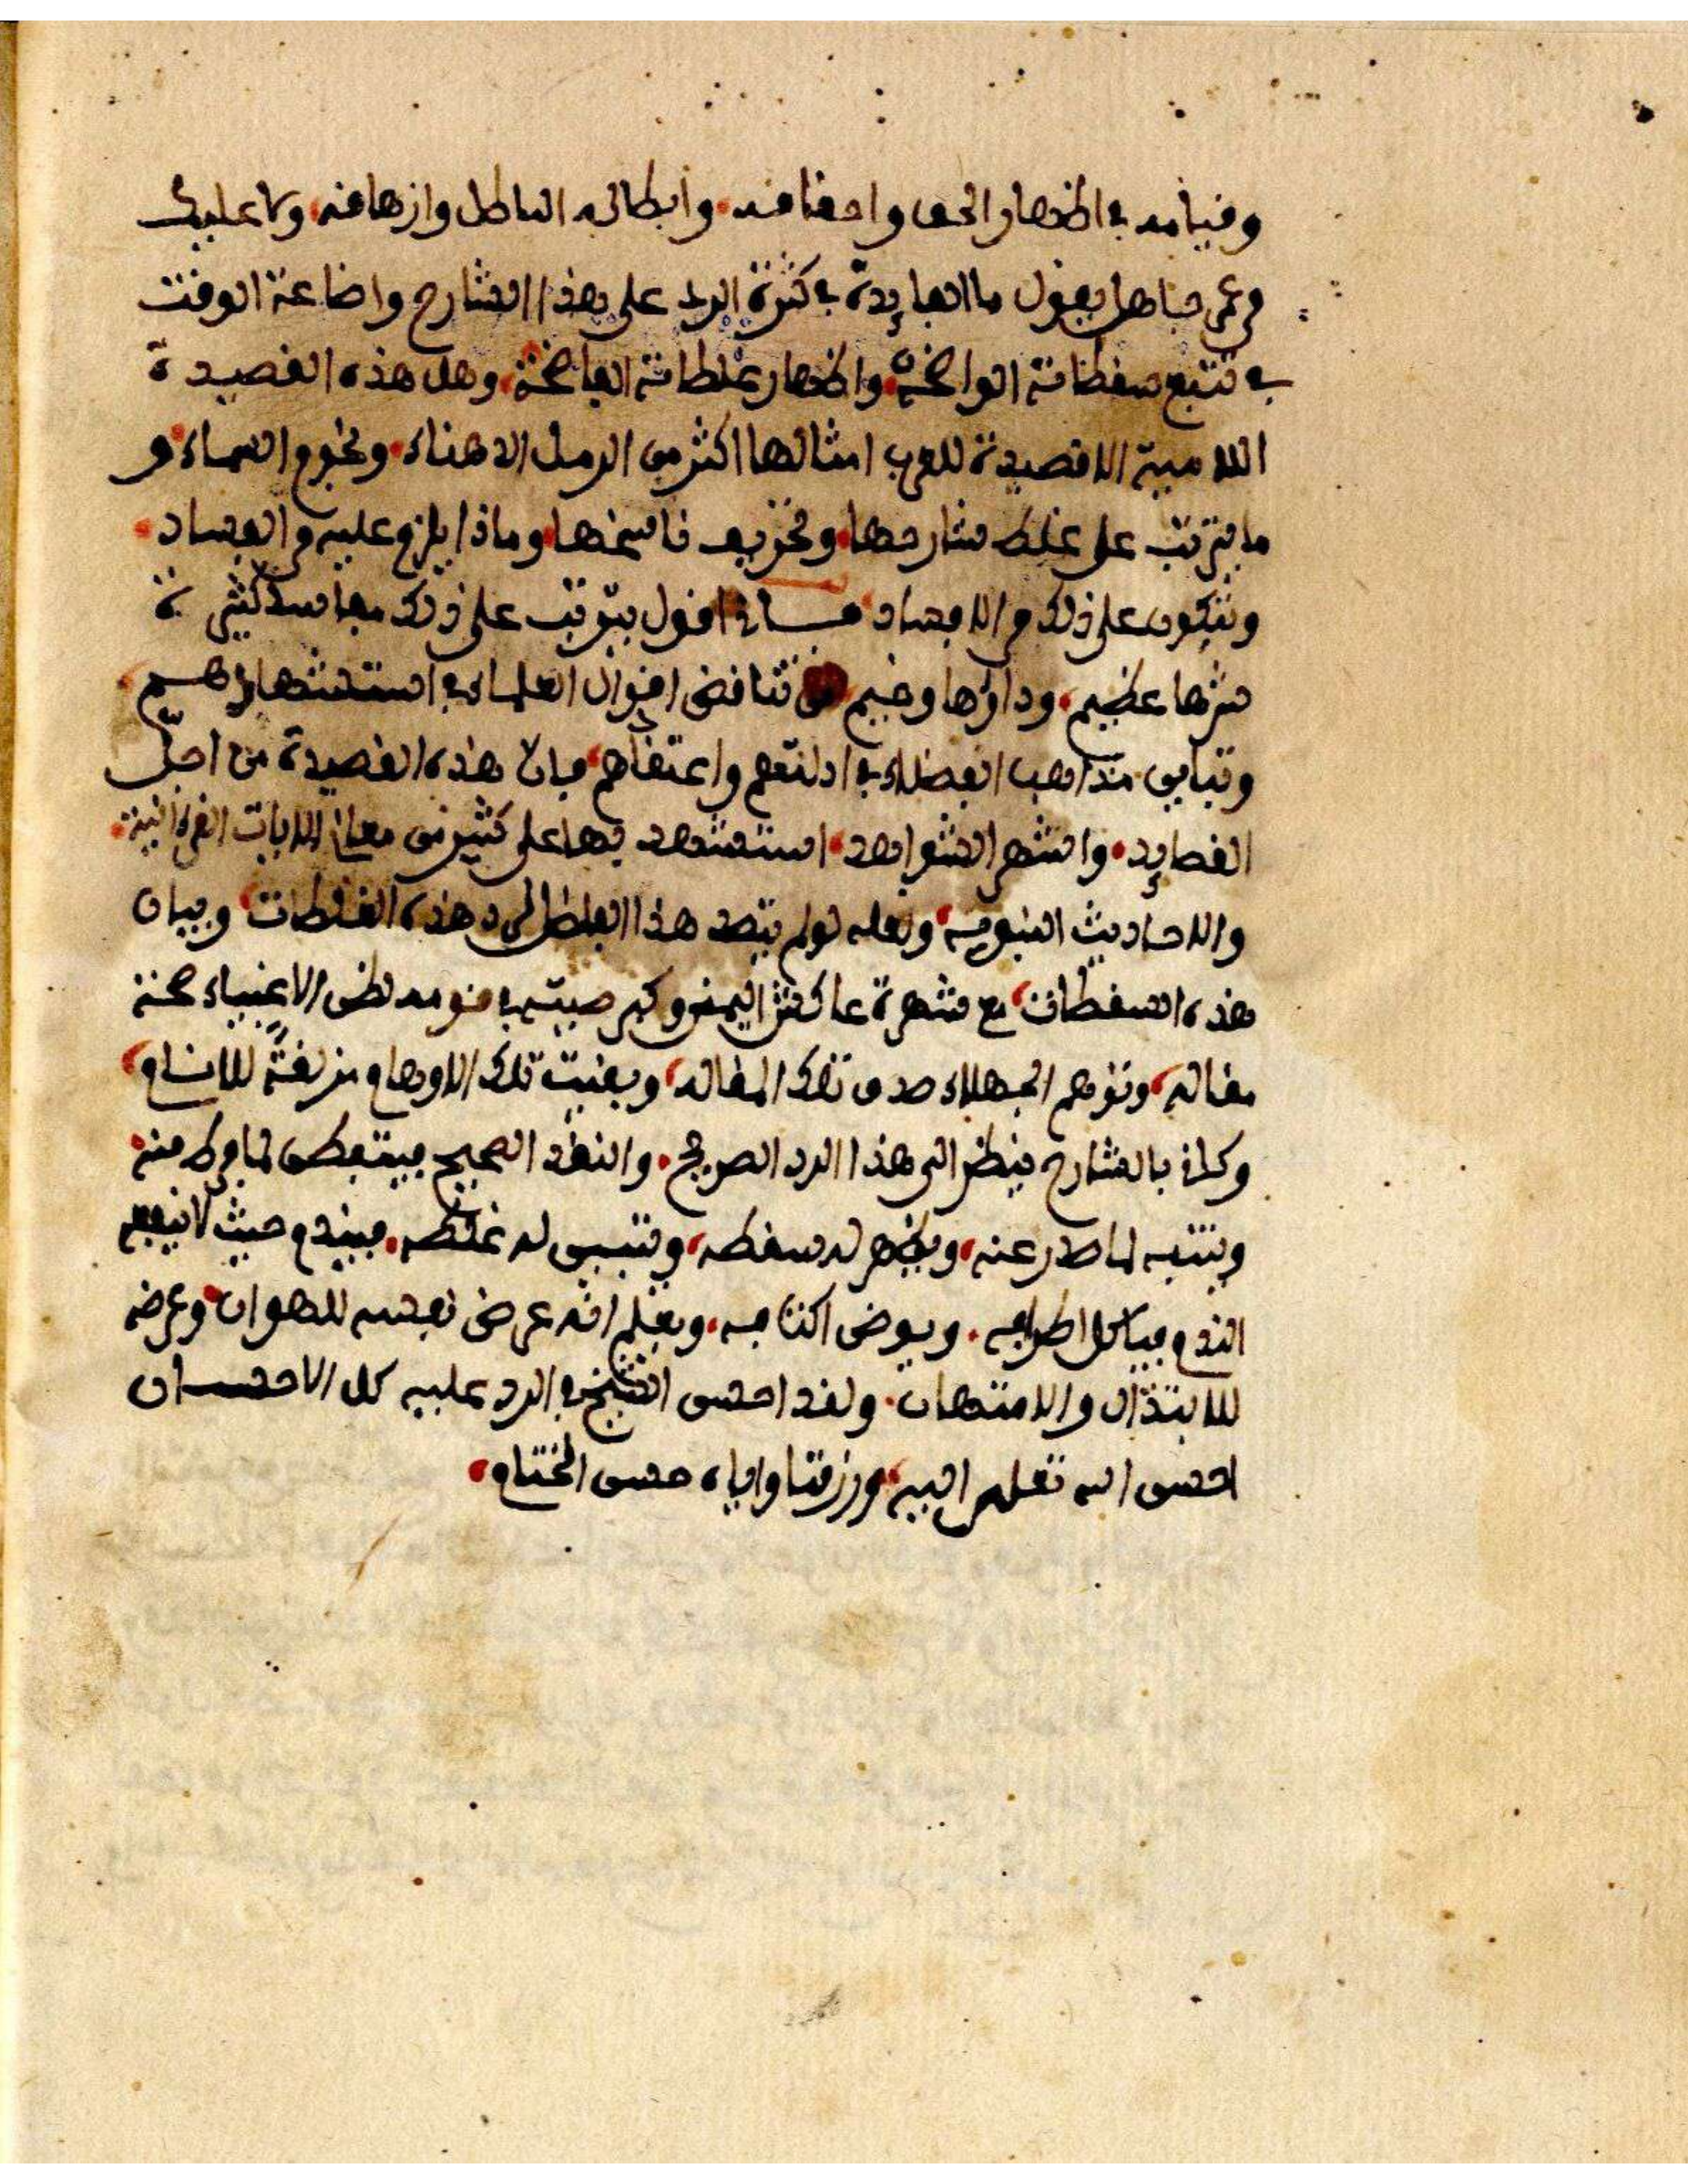 وقيامه في اظهار الحق واحقاقه وابطاله الباطل وازهاقه وما عليك
من جاهل يقول ما الفايدة في كثرة الرد على هذا الشارح واضاعة الوقت
في تتبع سقطاته الواضحة واظهار غلطاته الفاضحة وهل هذه القصيدة
اللامية الا قصيدة للعرب امثالها اكثر من الرمل الدهناء ونجوم السماء و
ما يترتب على غلط شارحها وتحريف ناسخها وماذا يلزم عليه من الفساد
ويتكون على ذلك من الافساد اقول يترتب على ذلك مفاسد كثيرة
شرها عظيم وداؤها وخيم تناقض اقوال العلماء في استشهادهم
وتباين مذاهب الفضلاء في ادلتهم واعتقادهم فان هذه القصيدة من اجل
القصايد واشهر الشواهد استشهد بها على كثير من معاني الايات القرءانية
والاحاديث النبوية ولعله لو لم يتصد هذا الفاضل لرد هذه الغلطات وبيان
هذه السقطات مع شهرة عاكش اليمن وكبر صيته في قومه لظن الاغبياء صحة
مقاله وتوهم الجهلاء صدق تلك المقاله وبقيت تلك الاوهام مزلقة للانام
وكاني بالشارح ينظر الى هذا الرد الصريح والنقد الصحيح فيتفطن لما فرط منه
ويتنبه لما صدر عنه ويظهر له سقطه ويتبين له غلطه فيندم حيث لا ينفع
الندم فياكل اطرافه ويعض اكتافه ويعلم انه عرض نفسه للهوان وعرضه
للابتذال والامتهان ولقد احسن الشيخ في الرد عليه كل الاحسان
احسن الله تعلى اليه ورزقنا واياه حسن الختام